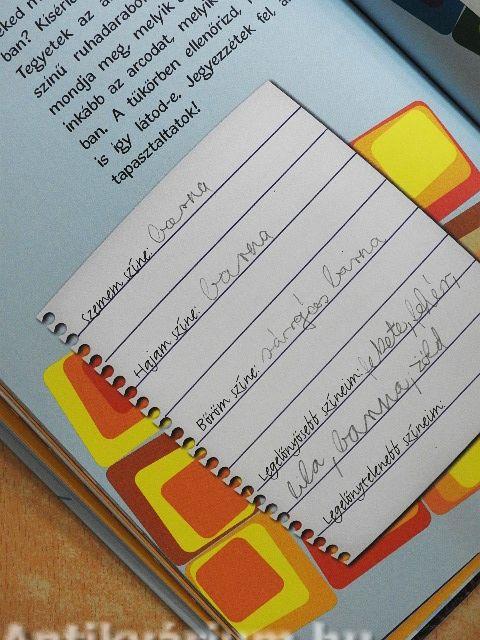 ban? Kísérle
Tegyetek az ar
színű ruhadarabo
mondja meg, melyik
inkább az arcodat, melyik
ban. A tükörben ellenőrizd,
is így látod-e. Jegyezzétek fel, a
tapasztaltatok!
Szemem színe: barna
Hajam színe: barna
Bőröm színe: sárgás barna
Legelőnyösebb színeim: fekete, fehér,
lila, barna, zöld
Legelőnytelenebb színeim:
Antikvárium.hu